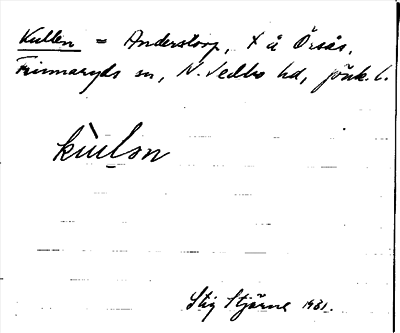 Kullen = Anderstorp, x å Örsås,
Frinnaryds sn, N. Vedbo hd, Jönk. l.
kùlen
Stig Stjärne 1931.